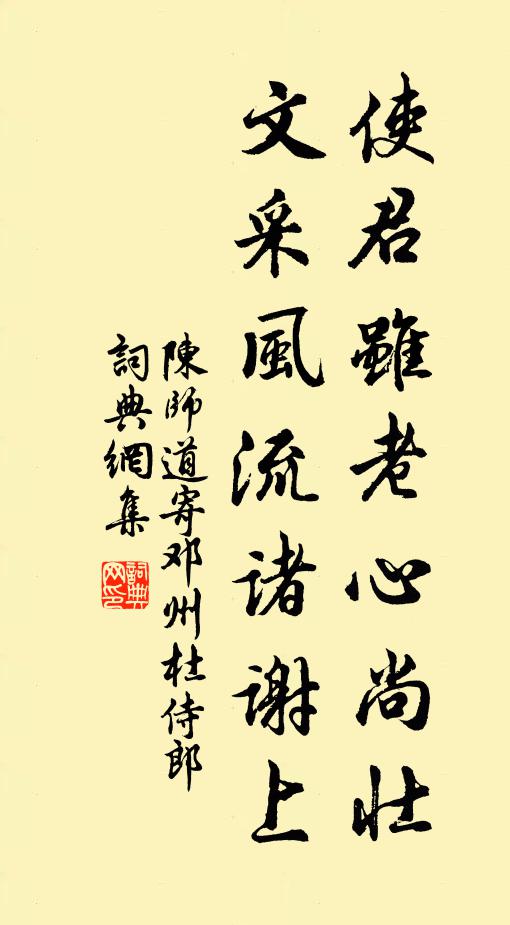 使君雖老心尚壮
文采風流诸谢上
陳師道寄邓州杜侍郎
詞典網集
詞典
网印